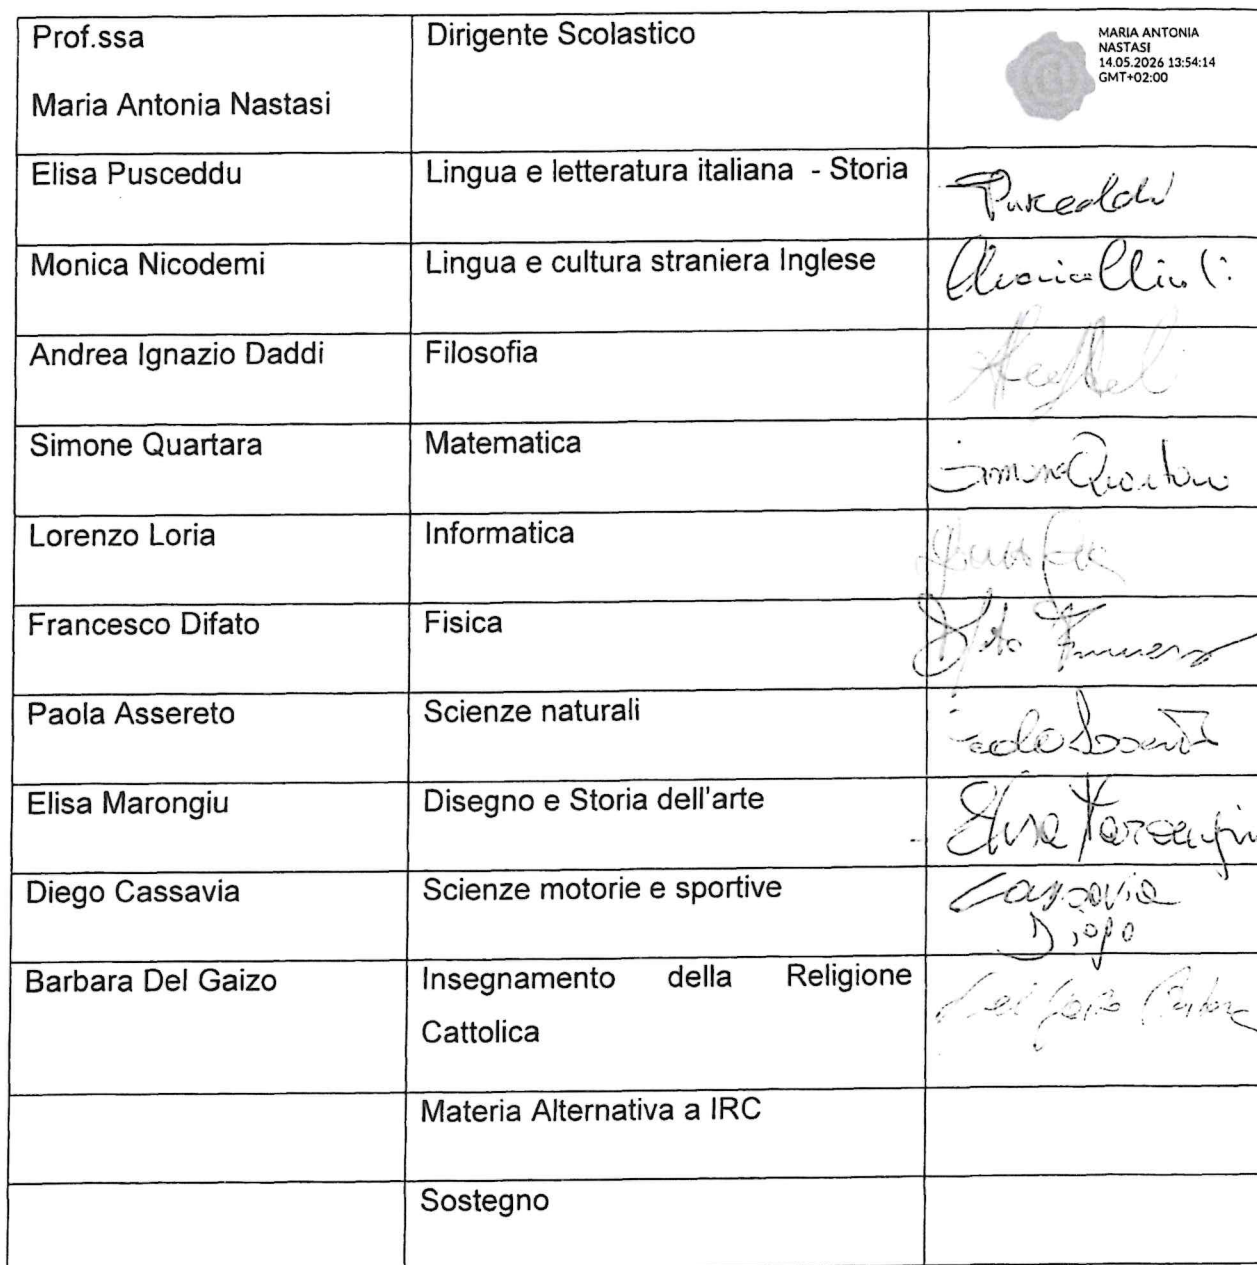 Prof.ssa
Maria Antonia Nastasi
Dirigente Scolastico
MARIA ANTONIA
NASTASI
14.05.2026 13:54:14
GMT+02:00
Elisa Pusceddu
Lingua e letteratura italiana - Storia
Pusceddu
Monica Nicodemi
Lingua e cultura straniera Inglese
Andrea Ignazio Daddi
Filosofia
Simone Quartara
Matematica
Simone Quartara
Lorenzo Loria
Informatica
Francesco Difato
Fisica
Paola Assereto
Scienze naturali
Elisa Marongiu
Disegno e Storia dell'arte
Elisa Marongiu
Diego Cassavia
Scienze motorie e sportive
Cassavia
Diego
Barbara Del Gaizo
Insegnamento della Religione
Cattolica
Materia Alternativa a IRC
Sostegno